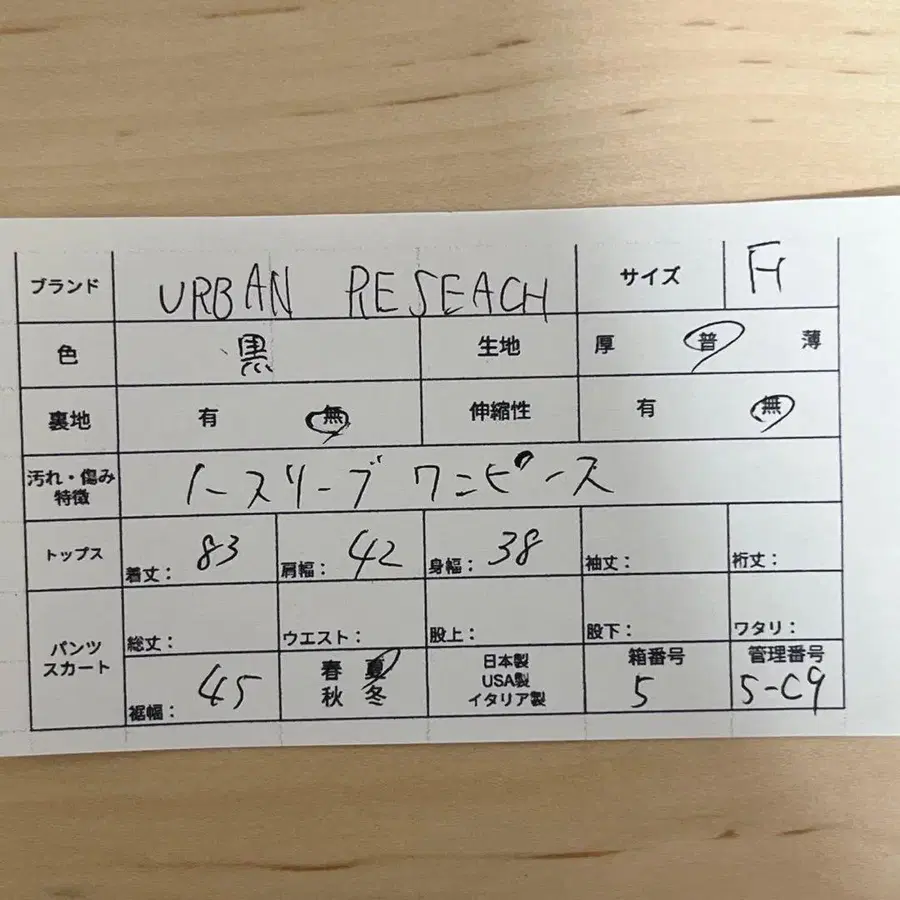 ブランド URBAN RESEACH サイズ F
色 黒 生地 厚 普 薄
裏地 有 無 伸縮性 有 無
汚れ・傷み
特徴 ノースリーブ ワンピース
トップス 着丈: 83 肩幅: 42 身幅: 38 袖丈: 裄丈:
パンツ
スカート 総丈: ウエスト: 股上: 股下: ワタリ:
裾幅: 45 春 夏
秋 冬 日本製
USA製
イタリア製 箱番号
5 管理番号
5-C9